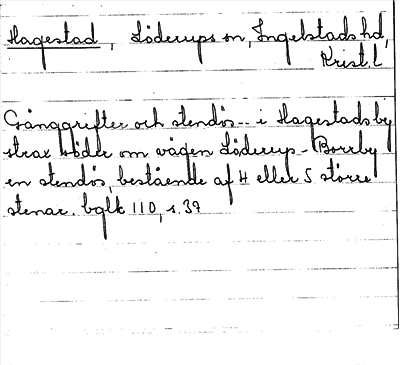 Hagestad, Löderups sn, Ingelstads hd,
Krist. L
Gånggrifter och stendös -- i Hagestads by
strax söder om vägen Löderup - Borrby
en stendös, bestående af 4 eller 5 större
stenar. bglk 110, s. 39